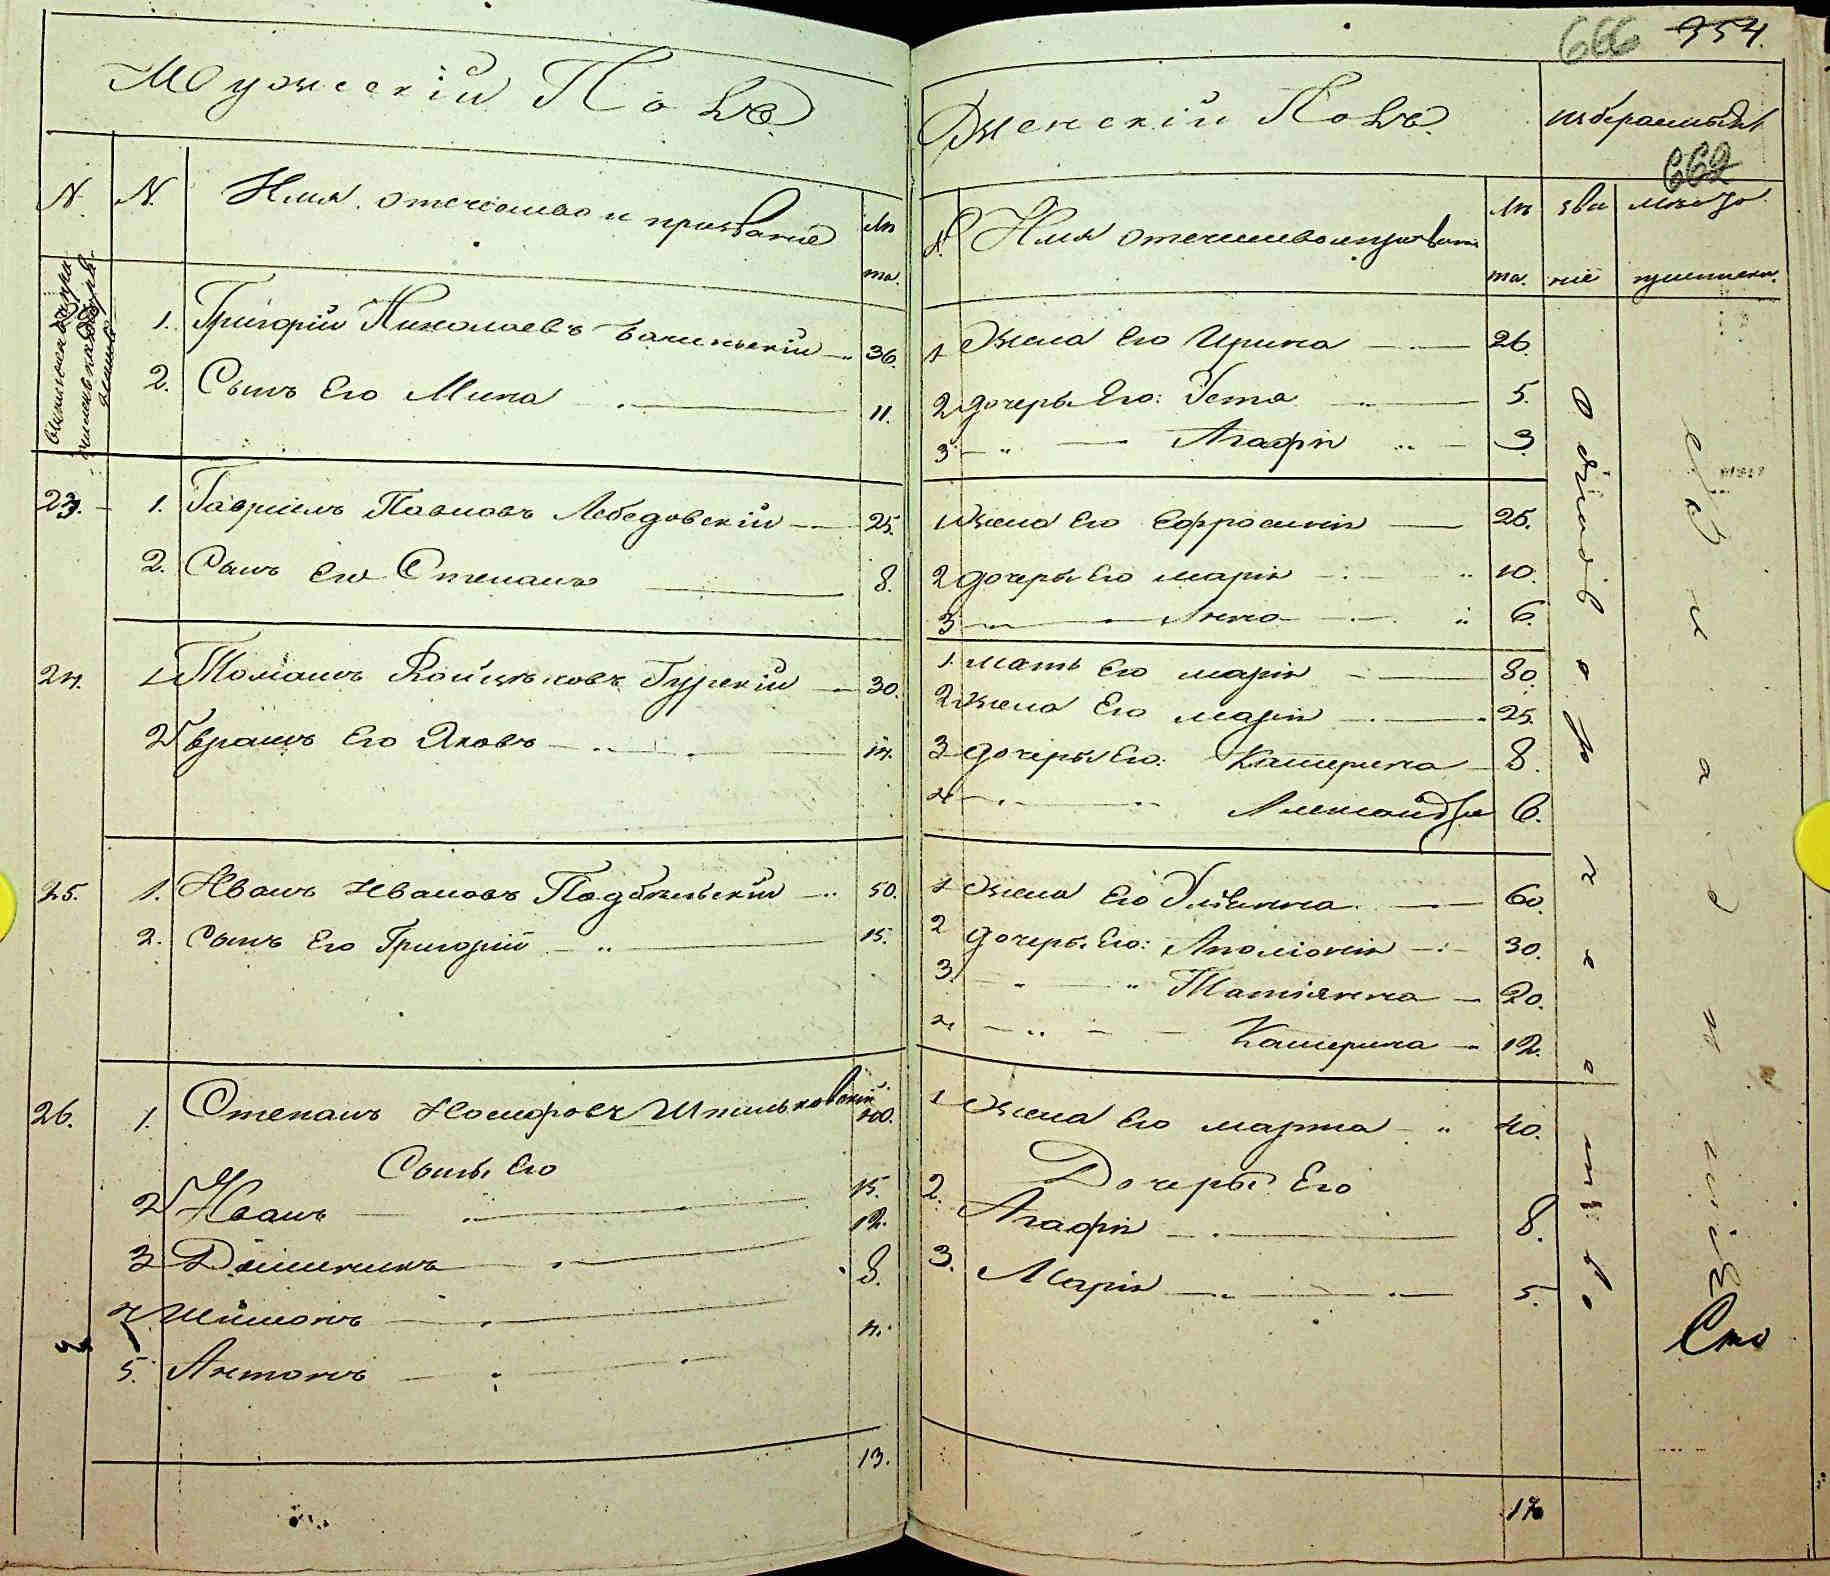 Мужескій Полъ
N.
N.
Имя, отечество и прозваніе
лѣ
та.
1. Григорій Николаевъ 36.
2. Сынъ Его Мина 11.
23. 1. Гавріилъ Павловъ Лебедовскій 25.
2. Сынъ Его Степанъ 8.
24. 1 Томашъ Войцѣховъ Гурскій 30.
2 братъ Его Яковъ 14.
25. 1. Иванъ Ивановъ Подбѣльскій 50.
2. Сынъ Его Григорій 15.
26. 1. Степанъ Іосифовъ 40.
Сынъ Его
2 Иванъ 15.
3 Доминикъ 12.
4. Шимонъ 8.
5. Антонъ 4.
13.
666 354.
Женскій Полъ
избраннаго
662
№ Имя отечество и прозваніе
лѣ
та.
зва
ніе
мѣсто
приписки.
1 Жена Его Ирина 26.
2 дочеры Его: Устя 5.
3 " Агафія 3.
1 Жена Его Ефросинія 25.
2 дочеры Его Марія 10.
3 Анна 6.
1. мать Его Марія 80.
2 жена Его Марія 25.
3 дочеры Его: Катерина 8.
4 " Александра 6.
1 Жена Его Ульянна 60.
2 дочеры Его: Аполіонія 30.
3. " " Татіянна 20.
4 " Катерина 12.
1 Жена Его Марта " 40.
Дочеры Его
2. Агафія 8.
3. Марія 5.
17
Однодворческое
Сто